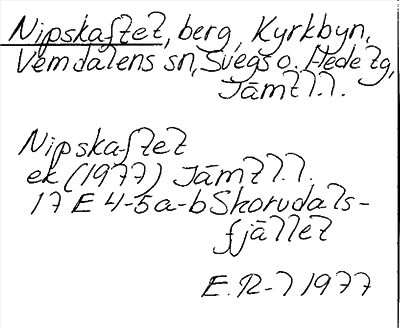 Nipskaftet, berg, Kyrkbyn,
Vemdalens sn, Svegs o. Hede tg,
Jämtl.l.
Nipskaftet
ek (1977) Jämtl.l.
17 E 4-5 a-b Skorvdals-
fjället
E.R-l 1977